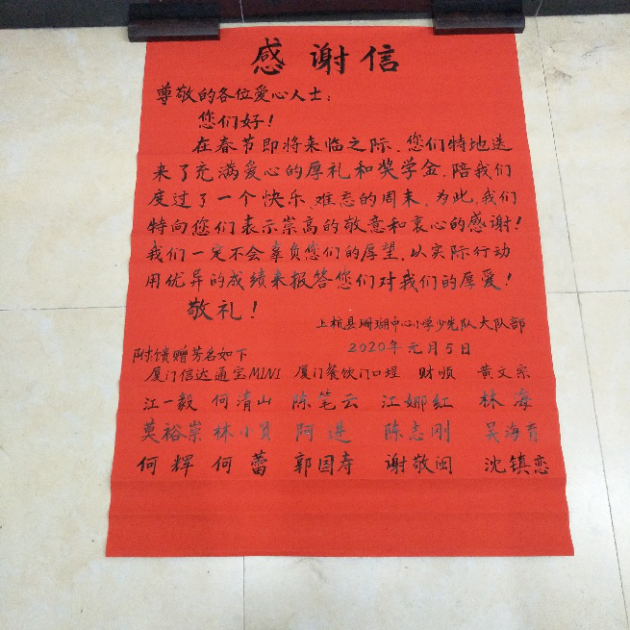 感谢信
尊敬的各位爱心人士：
您们好！
在春节即将来临之际、您们特地送
来了充满爱心的厚礼和奖学金，陪我们
度过了一个快乐、难忘的周末，为此，我们
特向您们表示崇高的敬意和衷心的感谢！
我们一定不会辜负您们的厚望，以实际行动
用优异的成绩来报答您们对我们的厚爱！
敬礼！
上杭县珊瑚中心小学少先队大队部
2020年元月5日
附：馈赠芳名如下
厦门信达通宝MINI 厦门餐饮门口埕 财顺 黄文宗
江一毅 何清山 陈笔云 江娜红 林海
莫裕崇 林小贤 阿进 陈志刚 吴海育
何辉 何蕾 郭国寿 谢敬闽 沈镇恋